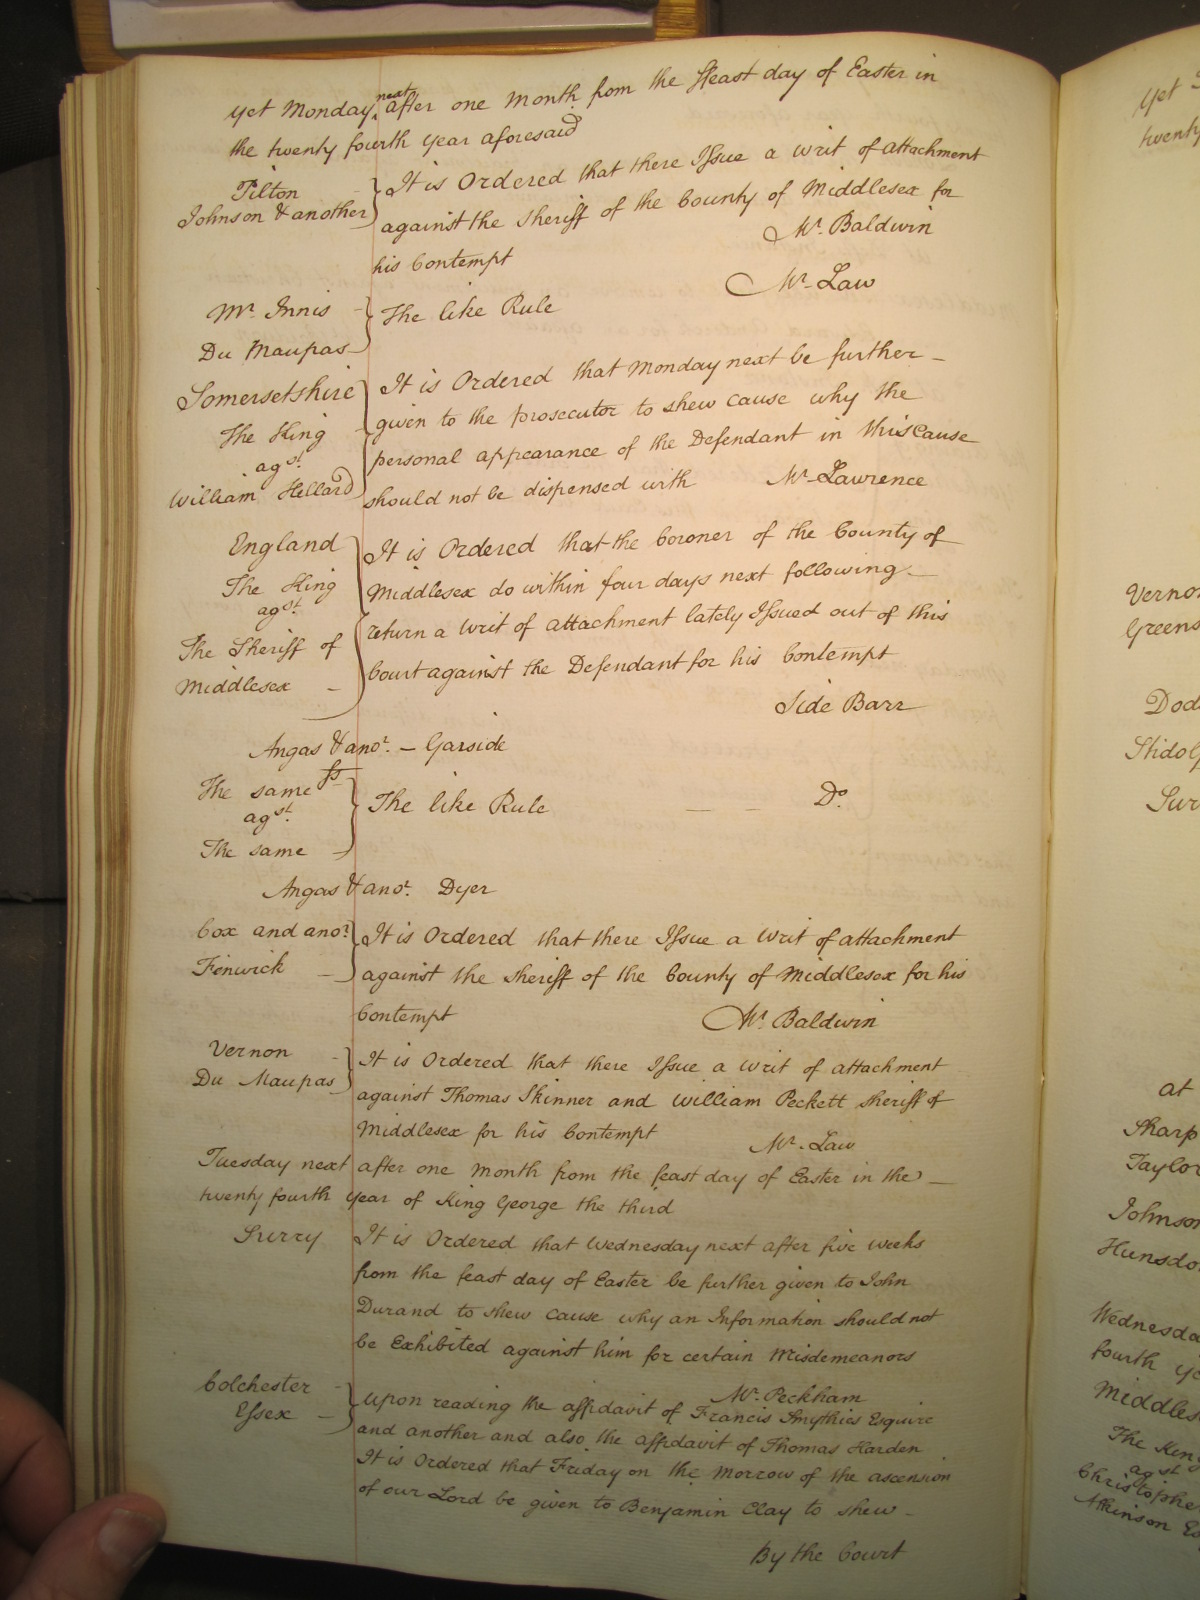 yet Monday next after one Month from the ffeast day of Easter in
the twenty fourth Year aforesaid
Pilton
Johnson & another
It is Ordered that there Issue a Writ of attachment
against the Sheriff of the County of Middlesex for
his Contempt
Mr. Baldwin
Mr. Law
Mr. Innis
Du Maupas
The like Rule
Somersetshire
The King
agst.
William Hellard
It is Ordered that Monday next be further
given to the prosecutor to shew cause why the
personal appearance of the Defendant in this Cause
should not be dispensed with Mr. Lawrence
England
The King
agst.
The Sheriff of
Middlesex
It is Ordered that the Coroner of the County of
Middlesex do within four days next following
return a Writ of attachment lately Issued out of this
Court against the Defendant for his Contempt
Side Barr
Angas & anor. - Garside
The same
agst.
The same
The like Rule Do.
Angas & anor. Dyer
Cox and anor.
Fenwick
It is Ordered that there Issue a Writ of attachment
against the Sheriff of the County of Middlesex for his
Contempt Mr. Baldwin
Vernon
Du Maupas
It is Ordered that there Issue a Writ of attachment
against Thomas Skinner and William Peckett Sheriff of
Middlesex for his Contempt Mr. Law
Tuesday next after one Month from the feast day of Easter in the
twenty fourth Year of King George the third
Surry
It is Ordered that Wednesday next after five weeks
from the feast day of Easter be further given to John
Durand to shew cause why an Information should not
be Exhibited against him for certain Misdemeanors
Mr. Peckham
Colchester
Essex
Upon reading the affidavit of Francis Smythies Esquire
and another and also the affidavit of Thomas Harden
It is Ordered that Friday on the Morrow of the ascension
of our Lord be given to Benjamin Clay to shew
By the Court
yet
twenty
Vernon
Greens
Dod
Stidolp
Sur
at
Sharp
Taylor
Johnson
Hunsdo
Wednesda
fourth ye
Middles
The King
agst
Christophe
Atkinson Es